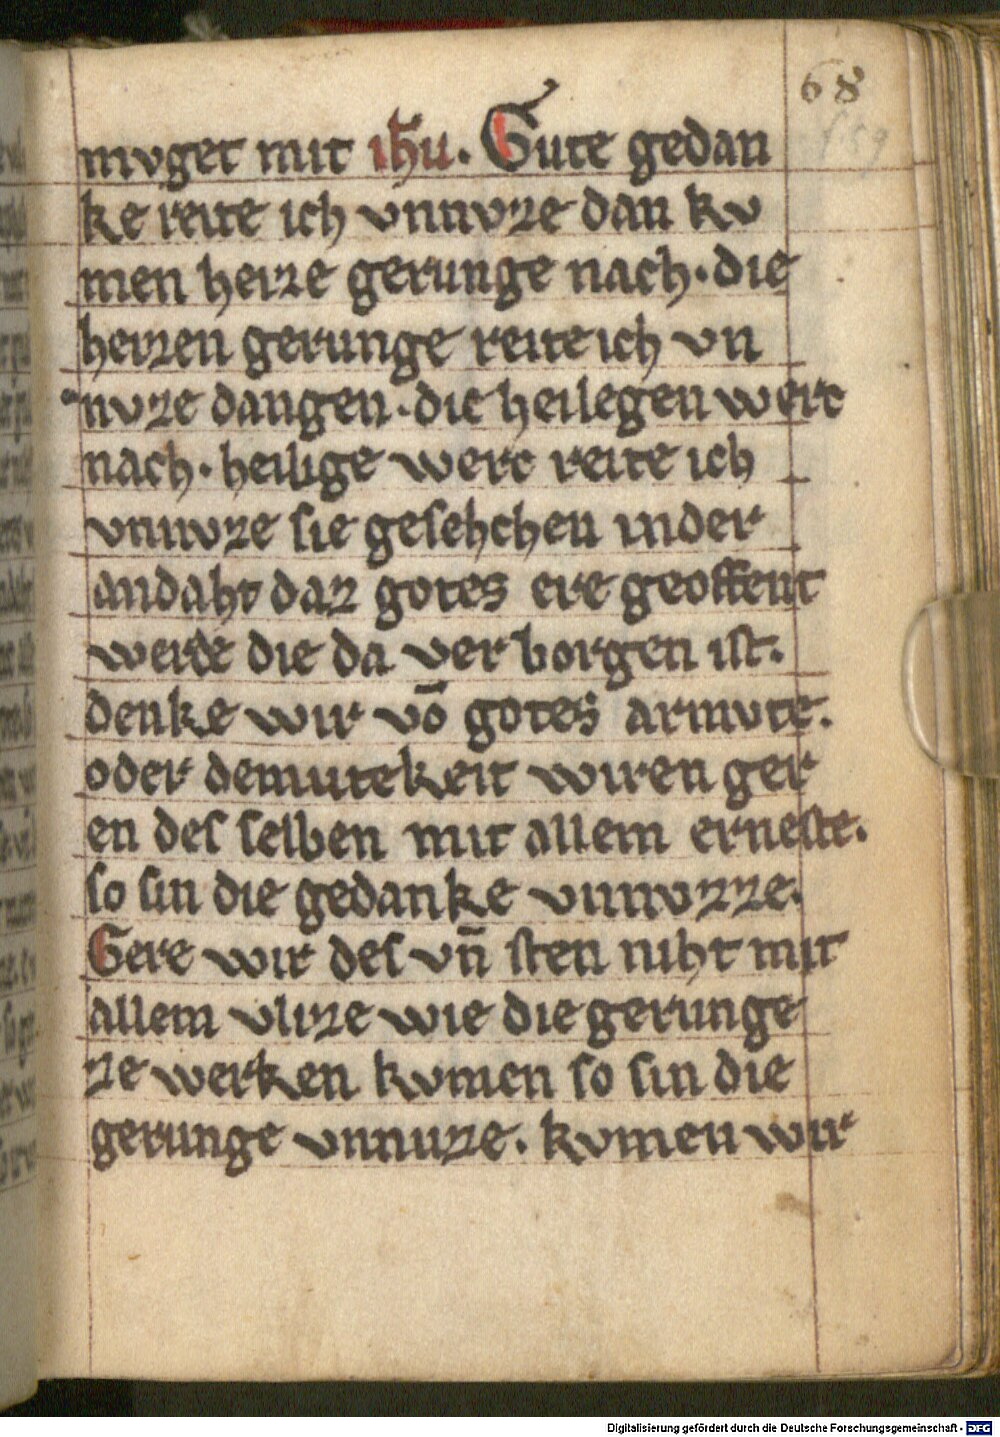 68
f. 59
mvget mit ih̄u. Gute gedan
ke reite ich vnnvze dan kv
men heize gerunge nach. die
heizen gerunge reite ich vn
nvze dangen. die heilegen werc
nach. heilige werc reite ich
vnnvze sie gesehchen inder
andaht daz gotes ere geoffent
werde die da verborgen ist.
denke wir vō gotes armvte.
oder demutekeit wiren ger
en des selben mit allem erneste.
so sin die gedanke vnnvzze.
Gere wir des vn̄ sten niht mit
allem vlize wie die gerunge
ze werken kvmen so sin die
gerunge vnnuzze. kvmen wir
Digitalisierung gefördert durch die Deutsche Forschungsgemeinschaft - DFG